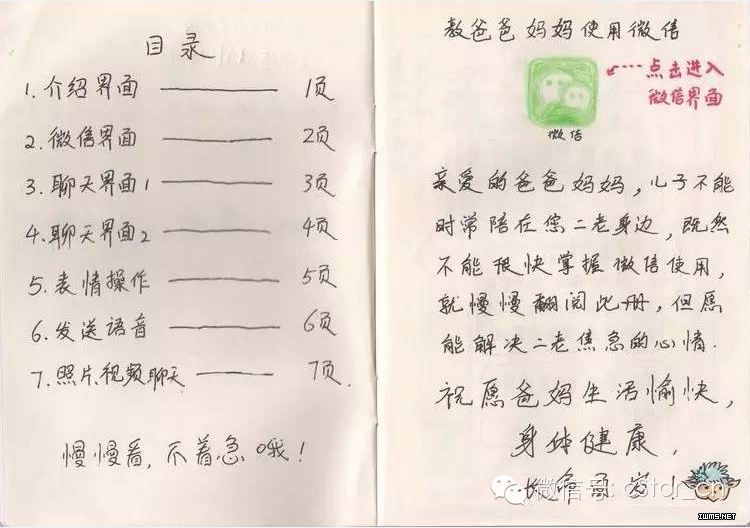 目录
1. 介绍界面 ———— 1页
2. 微信界面 ———— 2页
3. 聊天界面1 ———— 3页
4. 聊天界面2 ———— 4页
5. 表情操作 ———— 5页
6. 发送语音 ———— 6页
7. 照片视频聊天 —— 7页.
慢慢看,不着急哦!
教爸爸妈妈使用微信
点击进入
微信界面
微信
亲爱的爸爸妈妈,儿子不能
时常陪在您二老身边,既然
不能很快掌握微信使用,
就慢慢翻阅此册,但愿
能解决二老焦急的心情.
祝愿爸妈生活愉快,
身体健康,
长命百岁!
微信号: cctdr_cn
IWMS.NET